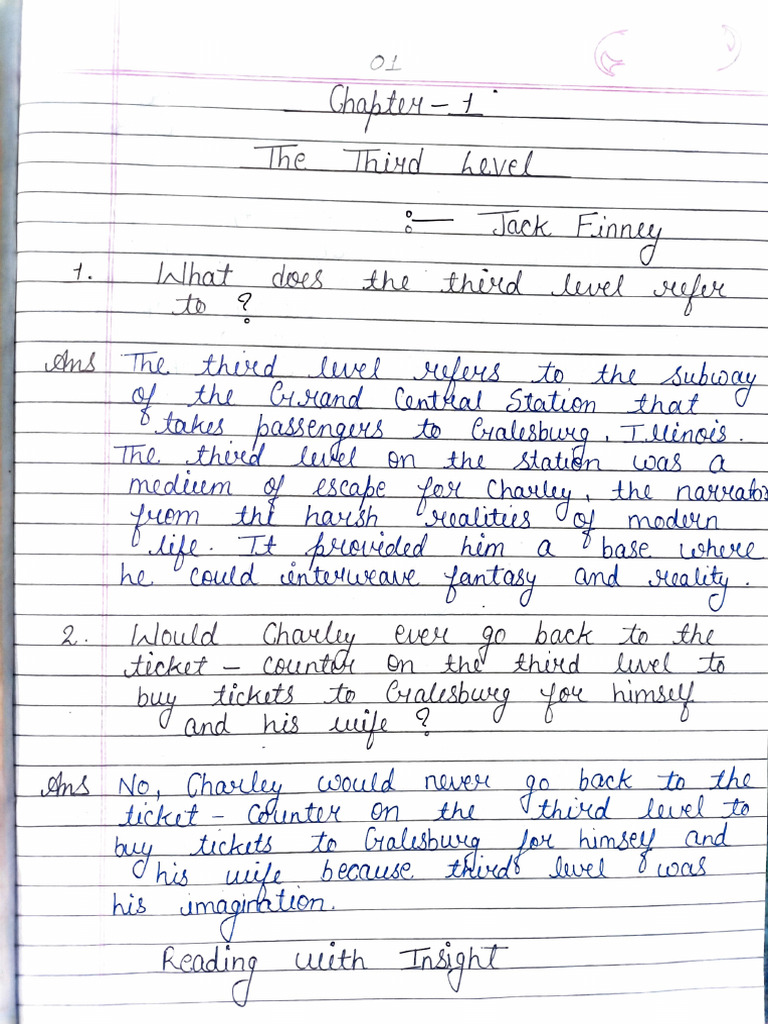 01
Chapter - 1
The Third Level
:— Jack Finney
1. What does the third level refer
to ?
Ans The third level refers to the subway
of the Grand Central Station that
takes passengers to Gralesburg, Illinois.
The third level on the station was a
medium of escape for Charley, the narrator
from the harsh realities of modern
life. It provided him a base where
he could interweave fantasy and reality.
2. Would Charley ever go back to the
ticket - counter on the third level to
buy tickets to Gralesburg for himself
and his wife ?
Ans No, Charley would never go back to the
ticket - counter on the third level to
buy tickets to Gralesburg for himself and
his wife because third level was
his imagination.
Reading with Insight